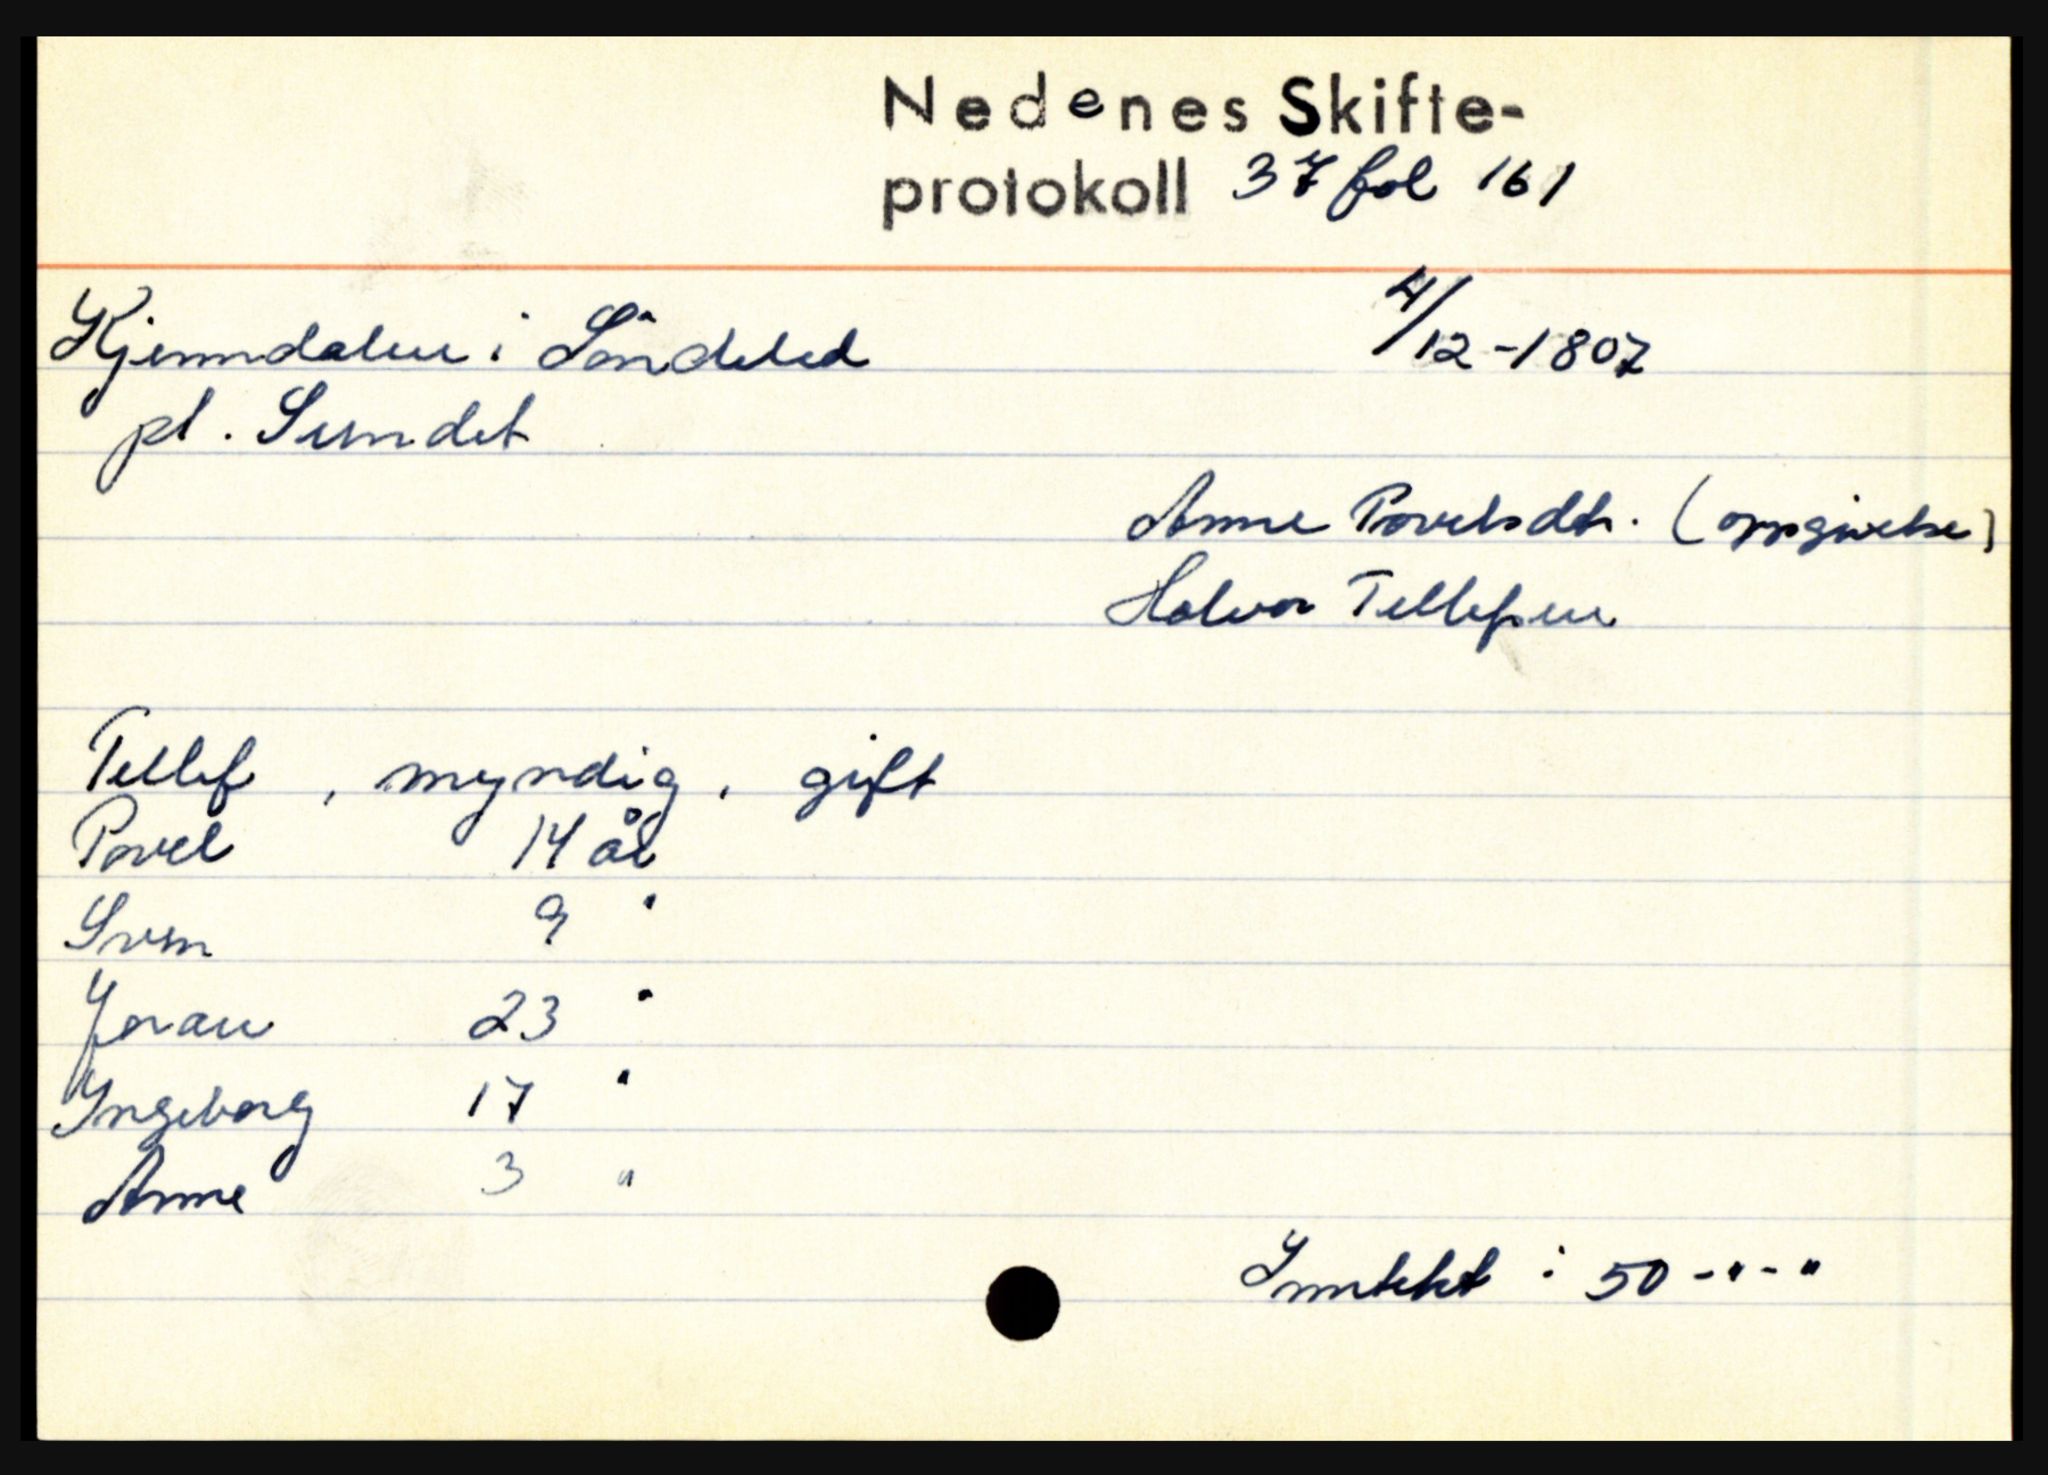 Nedenes Skifte-
protokoll 37 fol 161
Kjenndalen i Söndeled
4/12-1807
pl. Sundet
Anne Povelsdtr. (oppgivelse)
Halvor Tellefsen
Tellef, myndig, gift
Povel 14 år
Sven 9 "
Joran 23 "
Ingeborg 17 "
Anne 3 "
Inntekt : 50-"-"